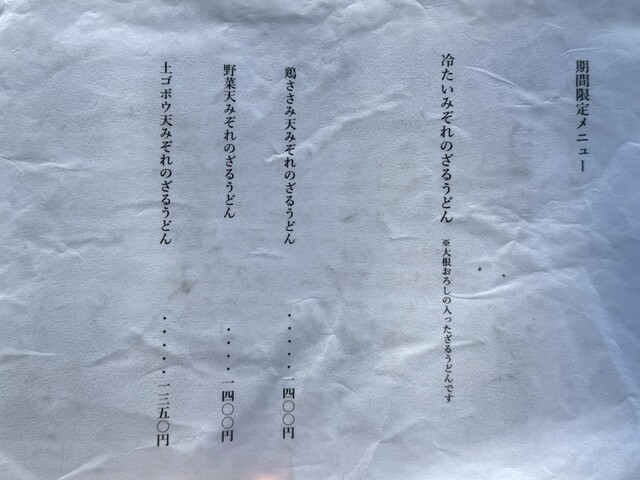 期間限定メニュー
冷たいみぞれのざるうどん ※大根おろしの入ったざるうどんです
鶏ささみ天みぞれのざるうどん ・・・・・一四〇〇円
野菜天みぞれのざるうどん ・・・・一四〇〇円
土ゴボウ天みぞれのざるうどん ・・・・・一三五〇円